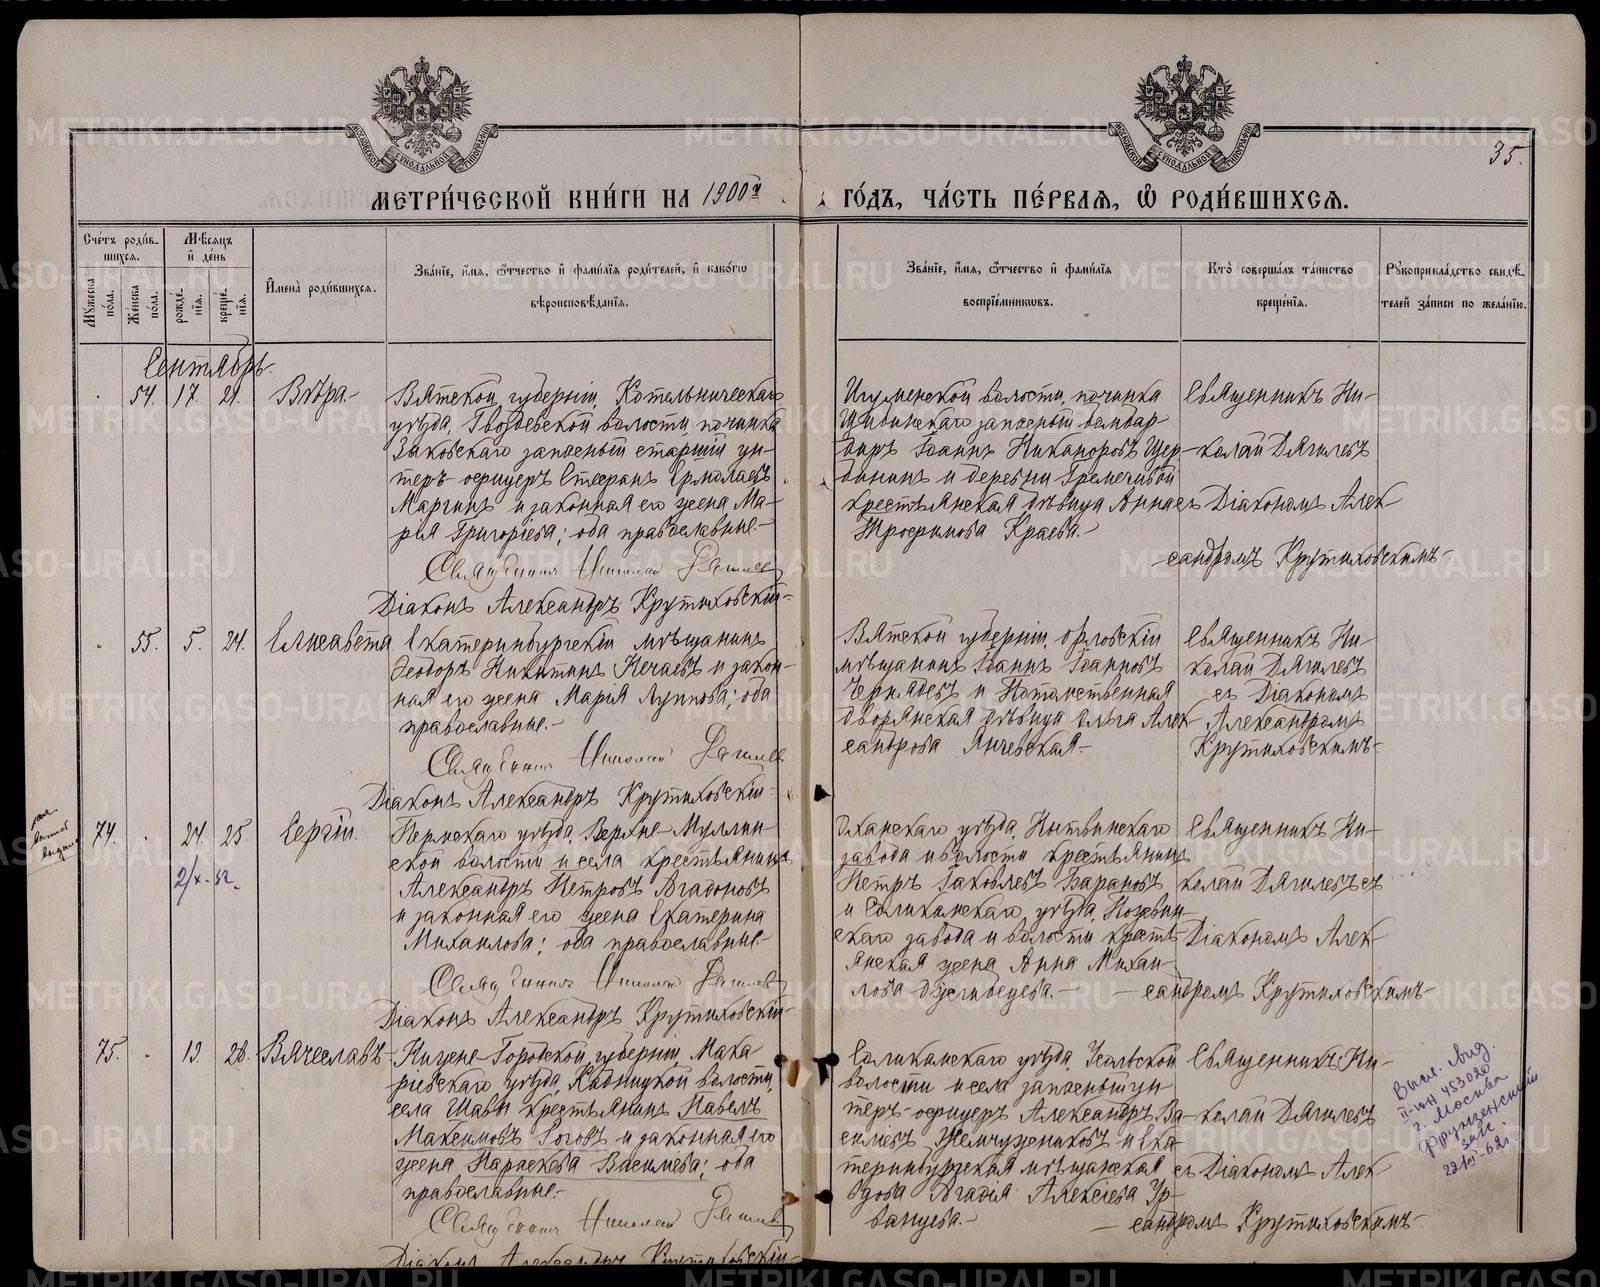 35.
МЕТРИ́ЧЕСКОЙ КНИ́ГИ НА 1900й ГО́ДЪ, ЧА́СТЬ ПЕ́РВАѦ, Ѡ҆ РОДИ́ВШИХСѦ.
Сче́тъ роди́в-
шихся.
Мѣ́сяцъ
и҆ де́нь
Мꙋ́жеска по́ла.
Же́нска по́ла.
рожде́нїѧ.
креще́нїѧ.
И҆мена̀ роди́вшихсѧ.
Зва́нїе, и҆́мѧ, ѻ҆́тчество и҆ фами́лїѧ роди́телей, и҆ како́гѡ
вѣроисповѣ́данїѧ.
Зва́нїе, и҆́мѧ, ѻ҆́тчество и҆ фами́лїѧ
воспрїе́мникѡвъ.
Кто̀ соверша́лъ та́инство
креще́нїѧ.
Рꙋкоприкла́дство свидѣ́-
телей за́писи по жела́нїю.
Сентябрь.
54. 17. 21. Вѣра.-
Вятской губерніи, Котельническаго
уѣзда, Гвоздевской волости, починка
Зыковскаго запасный старшій ун-
теръ-офицеръ Стефанъ Ермолаевъ
Маргинъ и законная его жена Ма-
рія Григоріева; оба православные.-
Священникъ Николай Дягилевъ
Діаконъ Александръ Крутиховскій-
Игуменской волости, починка
Шивинскаго запасный бомбар-
диръ Іоаннъ Никаноровъ Щер-
бининъ и деревни Гремечевой
крестьянская дѣвица Анна
Трофимова Краева.-
Священникъ Ни-
колай Дягилевъ
съ Діакономъ Алек-
сандромъ Крутиховскимъ-
55. 5. 24. Елисавета
Екатеринбургскій мѣщанинъ
Ѳеодоръ Никитинъ Нечаевъ и закон-
ная его жена Марія Луппова; оба
православные.-
Священникъ Николай Дягилевъ
Діаконъ Александръ Крутиховскій-
Вятской губерніи, Орловскій
мѣщанинъ Іоаннъ Іоанновъ
Чернядевъ и Потомственная
дворянская дѣвица Ольга Алек-
сандрова Янчевская-
Священникъ Ни-
колай Дягилевъ
съ Діакономъ
Александромъ
Крутиховскимъ-
74. 24. 25. Сергій.
2/х-52.
Пермскаго уѣзда, Верхне-Муллин-
ской волости и села крестьянинъ
Александръ Петровъ Агафоновъ
и законная его жена Екатерина
Михаилова; оба православные.-
Священникъ Николай Дягилевъ
Діаконъ Александръ Крутиховскій-
Оханскаго уѣзда, Нытвинскаго
завода и волости крестьянинъ
Петръ Іаковлевъ Барановъ
и Соликамскаго уѣзда, Пожвин-
скаго завода и волости кресть-
янская жена Анна Михаи-
лова Ожгибецева.-
Священникъ Ни-
колай Дягилевъ съ
Діакономъ Алек-
сандромъ Крутиховскимъ-
75. 19. 28. Вячеславъ-
Ниже-Городской губерніи, Мака-
ріевскаго уѣзда, Кадницкой волости,
села Шавы крестьянинъ Павелъ
Максимовъ Роговъ и законная его
жена Параскева Василіева; оба
православные.-
Священникъ Николай Дягилевъ
Діаконъ Александръ Крутиховскій-
Соликамскаго уѣзда, Усольской
волости и села запасный ун-
теръ-офицеръ Александръ Ва-
силіевъ Жемчужниковъ и Ека-
теринбургская мѣщанская
вдова Агафія Алексіева Ур-
ванцева.-
Священникъ Ни-
колай Дягилевъ
съ Діакономъ Алек-
сандромъ Крутиховскимъ-
Высл. свид.
II-юн 453020
г. Москва
Фрунзенский
загс
22/III-62г.